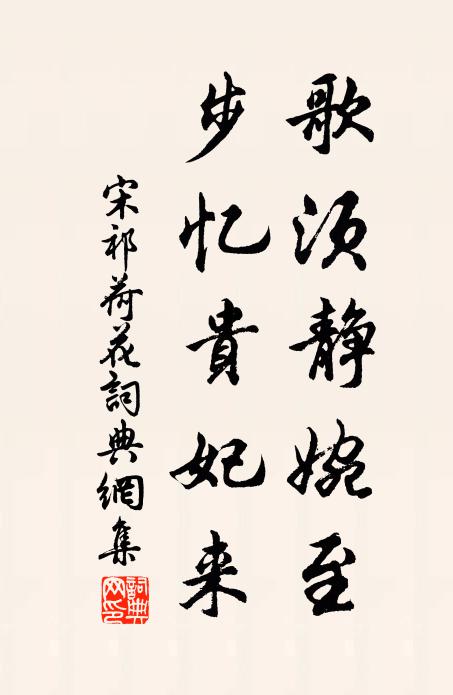 歌须静婉至
步忆貴妃来
宋祁荷花詞典網集
詞典网印